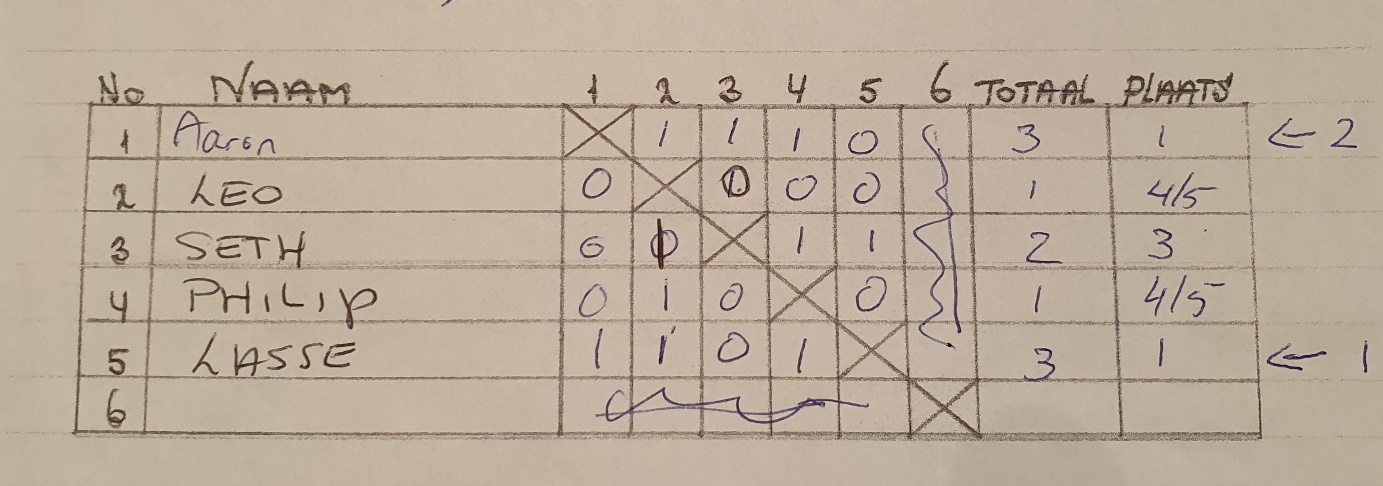 No NAAM 1 2 3 4 5 6 TOTAAL PLAATS
1 Aaron 1 1 1 0 3 1 ← 2
2 LEO 0 0 0 0 1 4/5
3 SETH 0 1 1 2 3
4 PHILIP 0 1 0 0 1 4/5
5 LASSE 1 1 0 1 3 1 ← 1
6